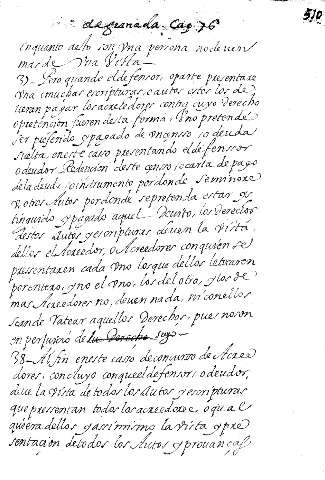 de granada. Cap. 76
510
en quanto a esto son una persona no deven
mas de Una Vista —
37 Pero quando el defensor, o parte presentare
una o muchas escripturas, o autos estos los de
veran pagar los acreedores contra cuyo derecho
o pretencion fueren desta forma: si uno pretende
ser preferido y pagado de un censo, o deuda
suelta, en este caso presentando el defensor
o deudor Redencion deste censo, o carta de pago
de la deuda, o instrumento por donde se minore
u otros Autos por donde se pretenda estar ex
tinguido y pagado aquel Decreto, los derechos
destos Autos y escripturas deven la vista
dellos el Acreedor, o Acreedores con quien se
presentaren cada uno los que dellos le tocaren
por entero, y no el uno, los del otro, y los de
mas Acreedores no deven nada, ni con ellos
se an de ratear aquellos Derechos, pues no son
en perjuicio de su Derecho suyo —
38 — Al fin en este caso de concurso de Acree
dores, concluyo con que el defensor, o deudor,
deve la vista de todos los Autos y escripturas
que presentan todos los acreedores, o qual
quiera dellos y assi mismo la vista y pre
sentacion de todos los Autos y provanças